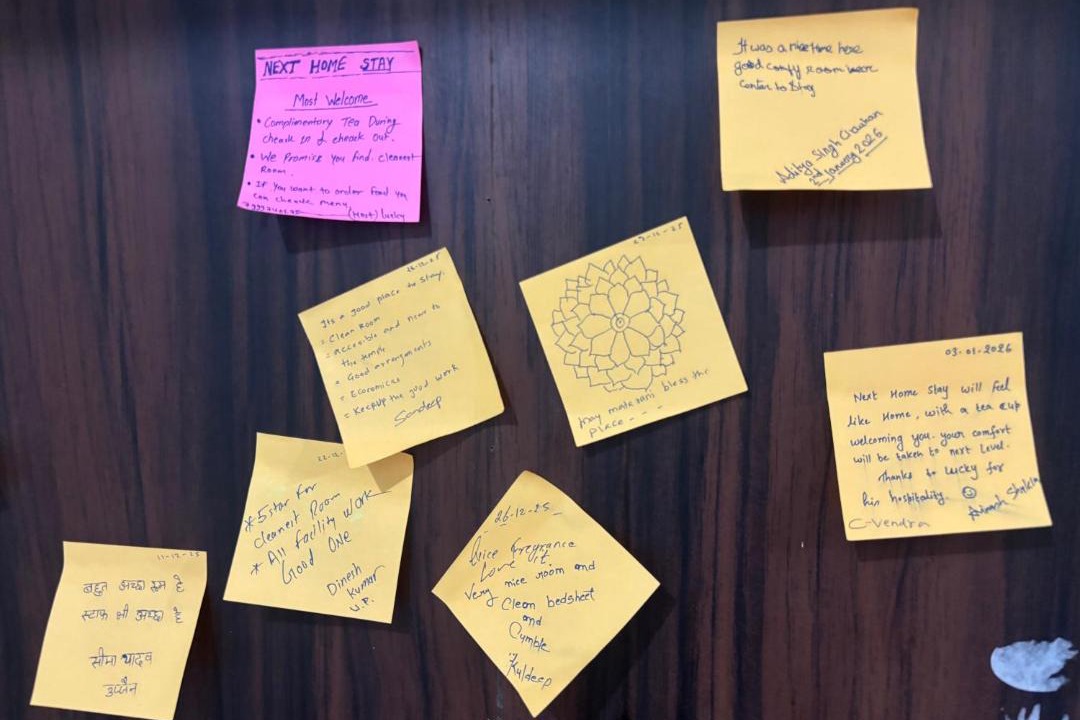 NEXT HOME STAY
Most Welcome
• Complimentary Tea During
cheack in & cheack out.
• We Promise You find. cleanest
Room.
• If You want to order food You
can cheack menu
(Host) Lucky
It was a nice time here
good comfy room were
Center to Stay
Aditya Singh Chauhan
2nd January 2026
Its a good place to stay.
- Clean Room
- Accesible and near to
the temple
- Good arrangements
- Economical
- Keep up the good work
Sandeep
27-12-25
may mahakal bless the
place - - -
03-01-2026
Next Home Stay will feel
like Home, with a tea cup
welcoming you. your comfort
will be taken to next Level.
Thanks to Lucky for
his hospitality. ☺
Avinash Shukla
C-Vendra
22-12-
* 5 star for
cleanest Room
* All facility work
Good ONE
Dinesh
Kumar
U.P.
26-12-25
Nice fregrance
Love it.
Very nice room and
Clean bedsheet
and
Cumble
Kuldeep
बहुत अच्छा रूम है
स्टाफ भी अच्छा है
सीमा यादव
उज्जैन